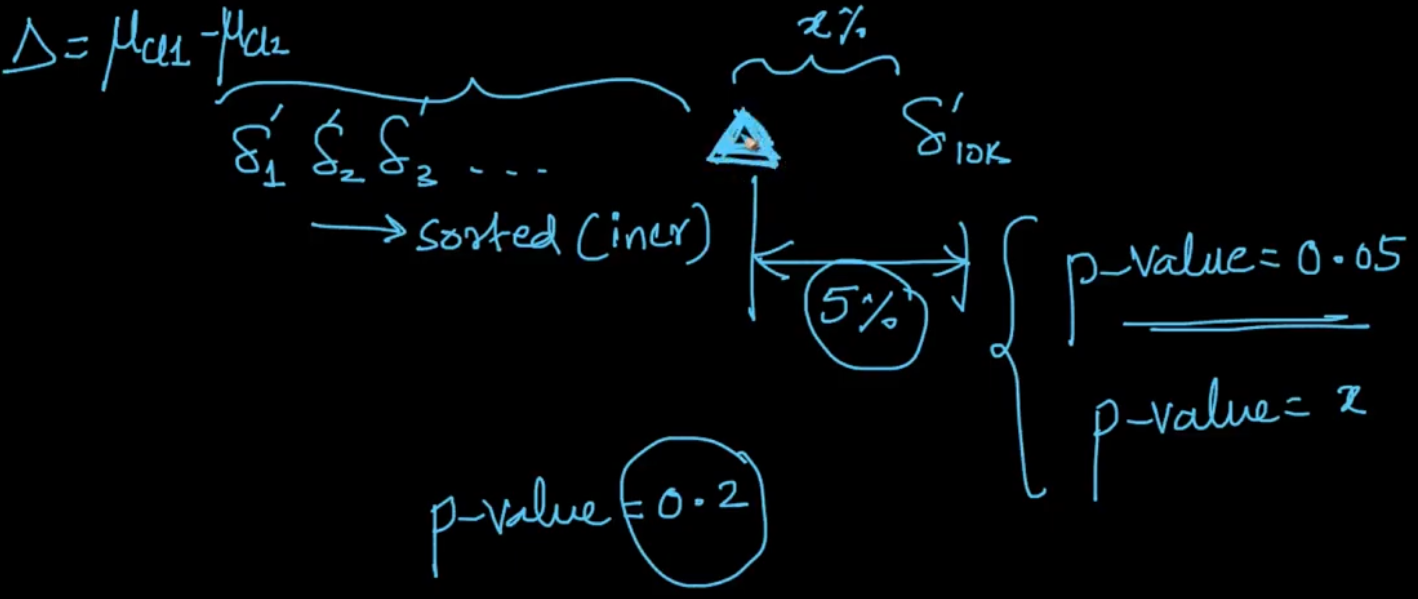 Δ = μcl1 - μcl2
x%
δ'1 δ'2 δ'3 ... Δ δ'10K
→ sorted (incr)
5%
p-value = 0.05
p-value = x
p-value = 0.2